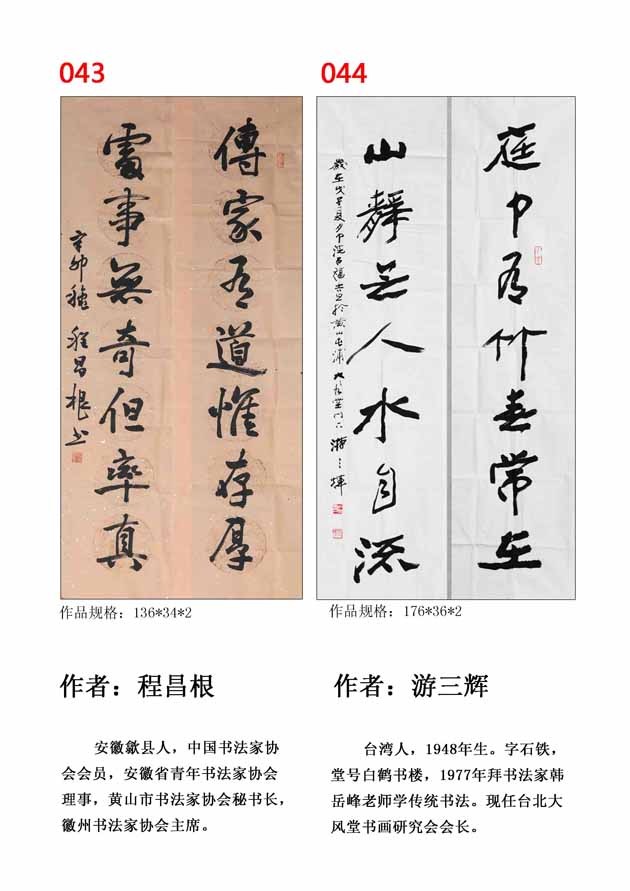 043
傳家有道惟存厚
處事無奇但率真
辛卯穐 程昌根书
作品规格：136*34*2
作者：程昌根
安徽歙县人，中国书法家协
会会员，安徽省青年书法家协会
理事，黄山市书法家协会秘书长，
徽州书法家协会主席。
044
庭中有竹春常在
山靜无人水自流
游三輝
作品规格：176*36*2
作者：游三辉
台湾人，1948年生。字石铁，
堂号白鹤书楼，1977年拜书法家韩
岳峰老师学传统书法。现任台北大
风堂书画研究会会长。